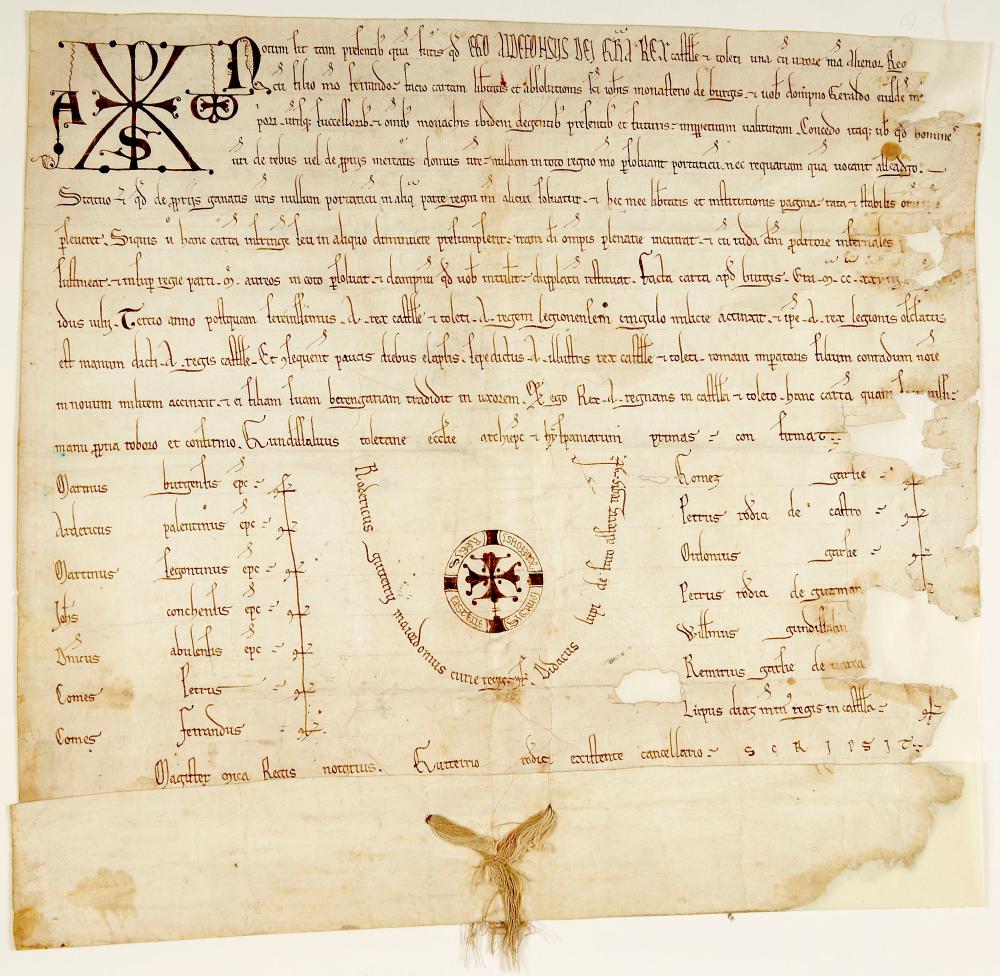 A S ω
Notum sit tam presentib' qua futis qd EGO ALDEFONSUS DEI GRA REX castelle & toleti una cu uxore mea alienor Reg
& cu filio mo ferrando facio cartam libtatis et absolutionis sci iohis monasterio de burgis & uob dompno Geraldo eiusde
pori uestrisq; successorib & omib monachis ibidem degentib presentib et futuris inppetuum ualituram. Concedo itaq; ut qd homines
uri de rebus uel de pprijs mercatis domus ure nullum in toto regno mo psoluant portaticu nec requaram qua uocant
Statuo & qd de pprijs ganatis uris nullum portaticu in aliq parte regni mi alicui soluatur & hec mee libtatis et institutionis pagina rata & stabilis
pseueret. Siquis u hanc carta infringe seu in aliquo diminuere presumpserit iram di omptis plenarie incurrat & cu iuda dni proditore infernales
sustineat & insup regie parti M aureos in coto psoluat & dampnu qd uob intulit duplicatu restituat. facta carta apd burgis Era M CC
idus iulij Tercio anno postquam serenissimus A rex castelle & toleti A regem legionensem cingulo milicie accinxit & ipe A rex legionis osclatus
est manum dicti A regis castelle Et sequent paucis diebus elapsis sepedictus A illustris rex castelle & toleti romani imperatoris filium conradum noie
in nouum militem accinxit & ei filiam suam berengariam tradidit in uxorem. Et ego Rex A regnans in castella & toleto hanc carta quam
manu ppria roboro et confirmo. Gundissaluus toletane ecclie archiepc & hyspaniarum primas confirmat
Marinus burgensis epc cf
Ardericus palentinus epc cf
Martinus segontinus epc cf
Johs conchensis epc cf
Dnicus abulensis epc cf
Comes Petrus cf
Comes ferrandus cf
Rodericus guterrij maiordomus curie regis cf
Didacus lupi de faro alferiz regis cf
SIGNUM ALDEFONSI REGIS CASTELLE
Gomez garsie cf
Petrus rodici de castro cf
Ordonius garsie cf
Petrus rodici de guzman
Willmus gundissalui
Remirius garsie de
Lupus diaz mrn regis in castella cf
Magister mica Regis notarius. Guterrio rodici existente cancellario SCRIPSIT